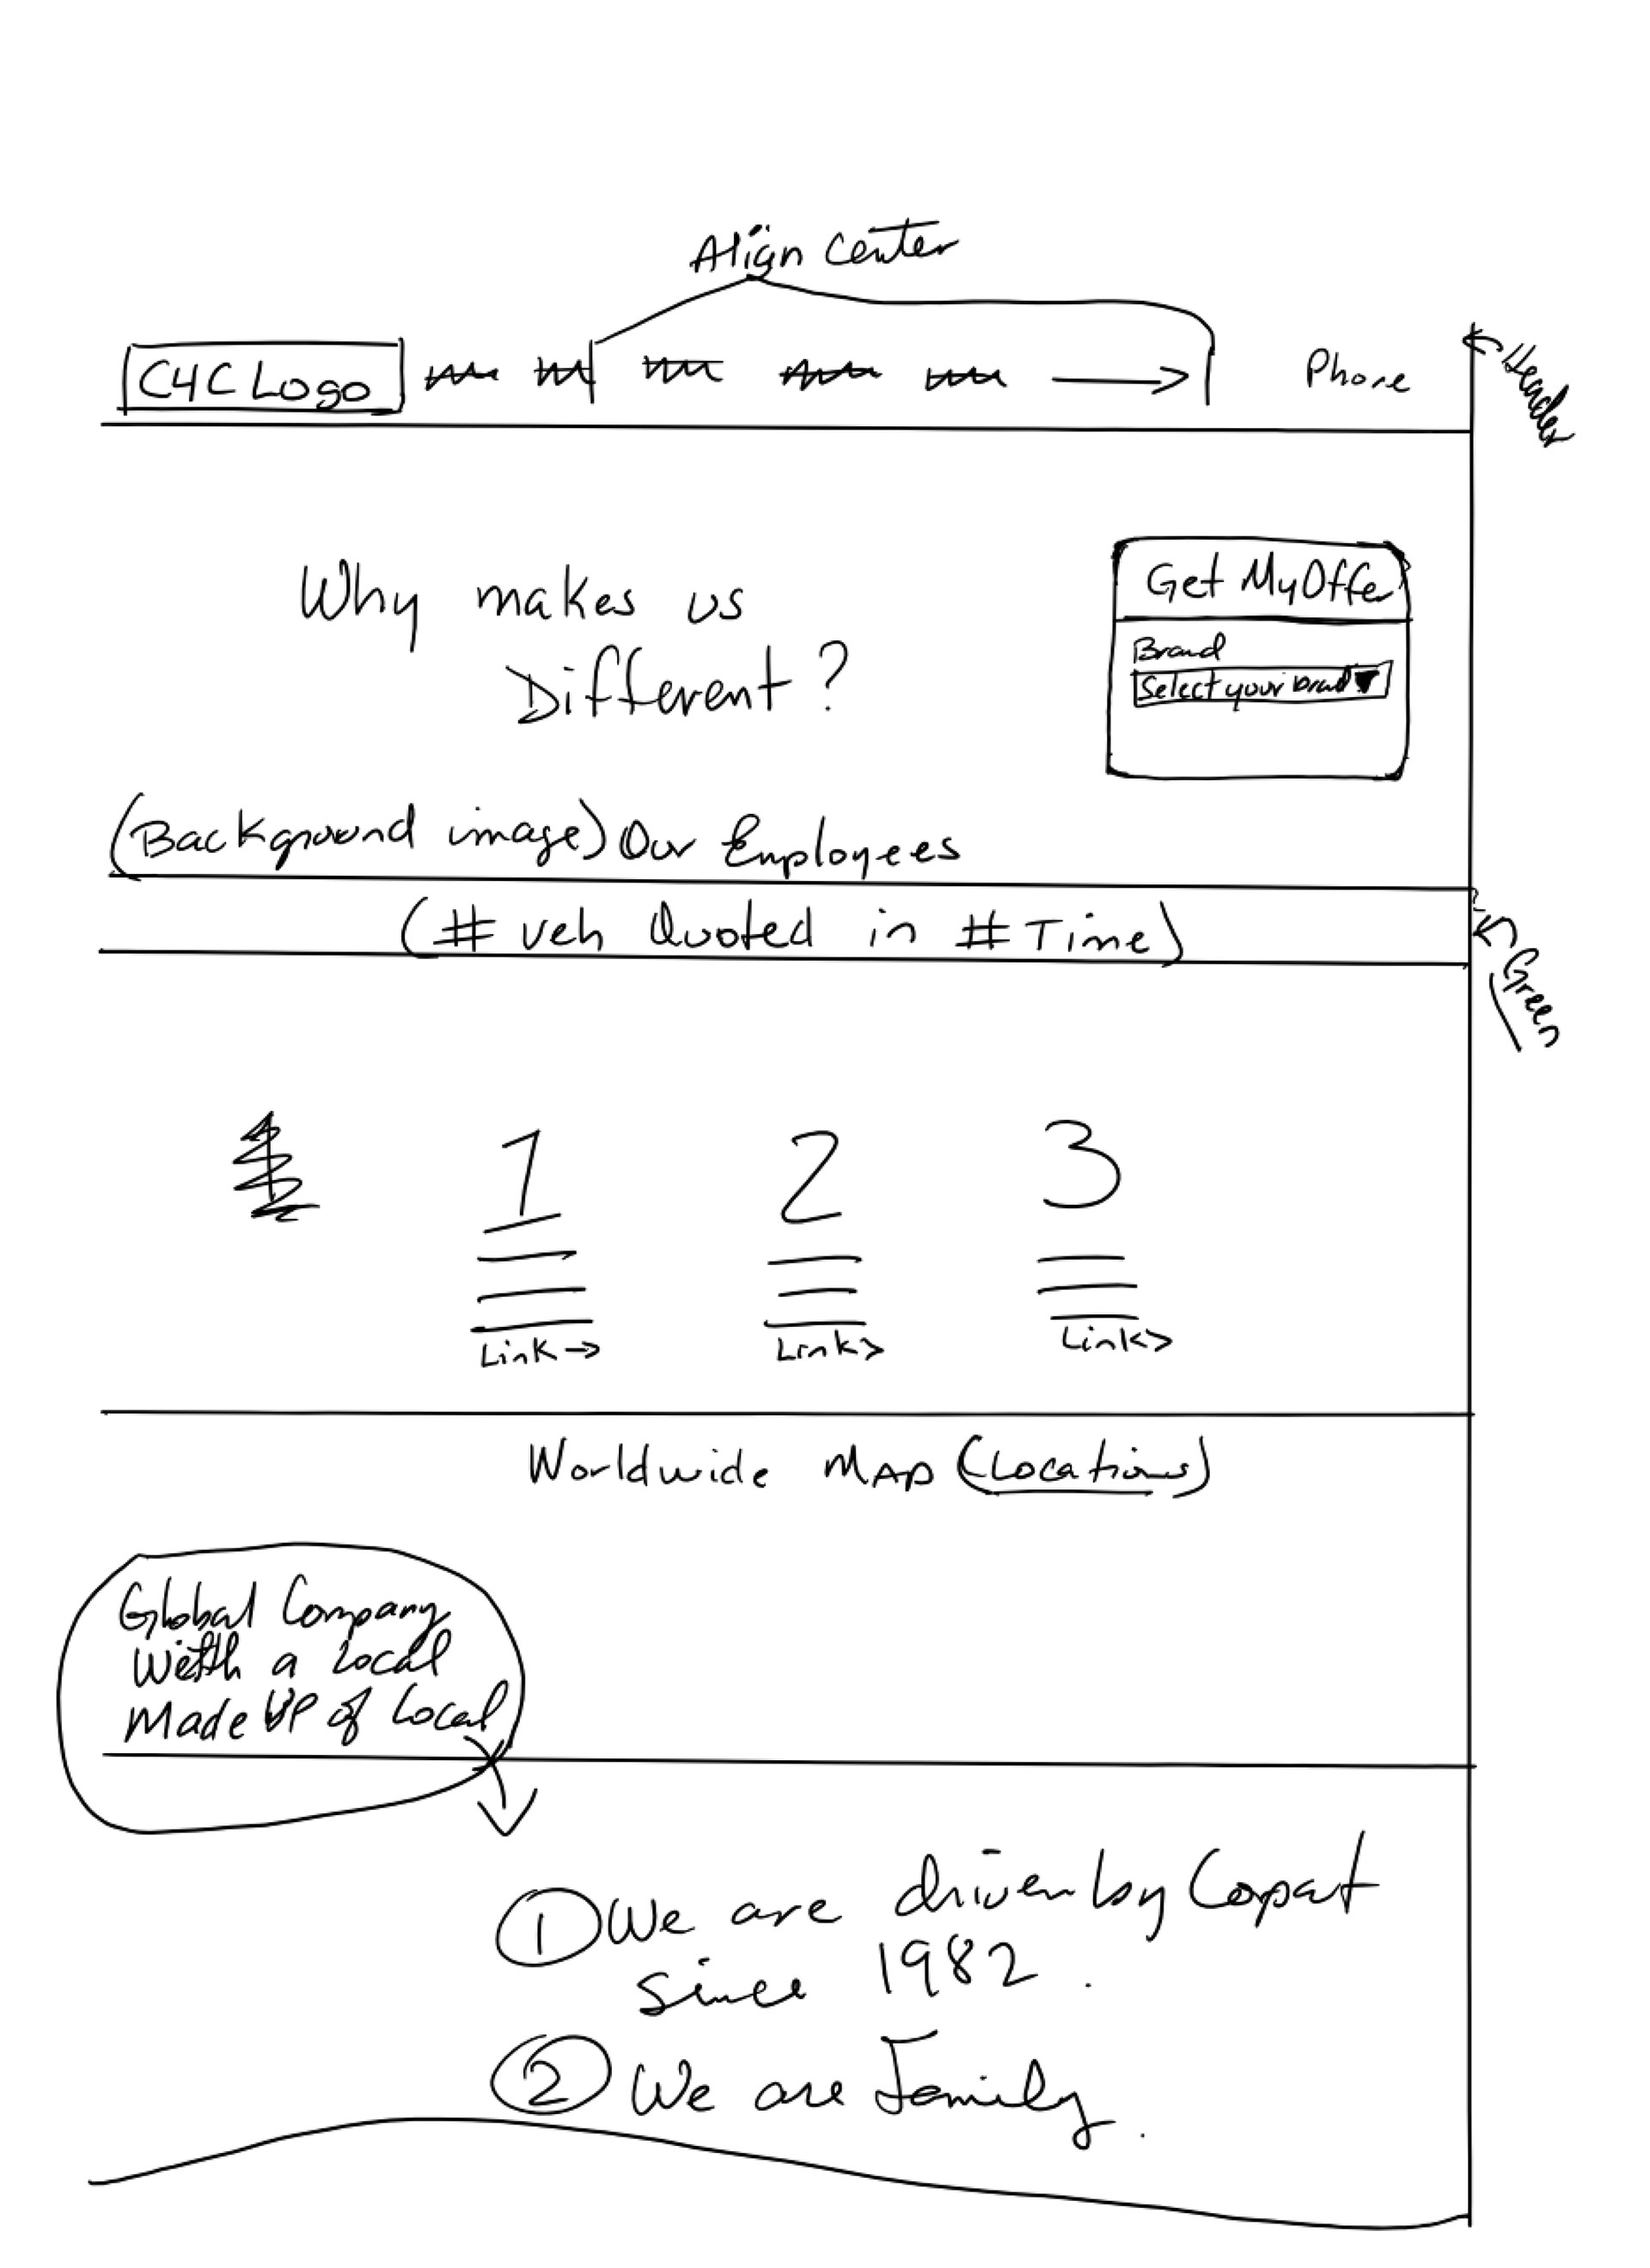 Align Center
C4C Logo
Phone
Header
Why makes us
Different?
Get My Offer
Brand
Select your brand
(Background image) Our Employees
(# veh Quoted in # Time)
Green
1 2 3
Link → Link> Link>
Worldwide MAP (Locations)
Global Company
With a Local
Made UP of Local
① We are driven by Copart
since 1982.
② We are Family.